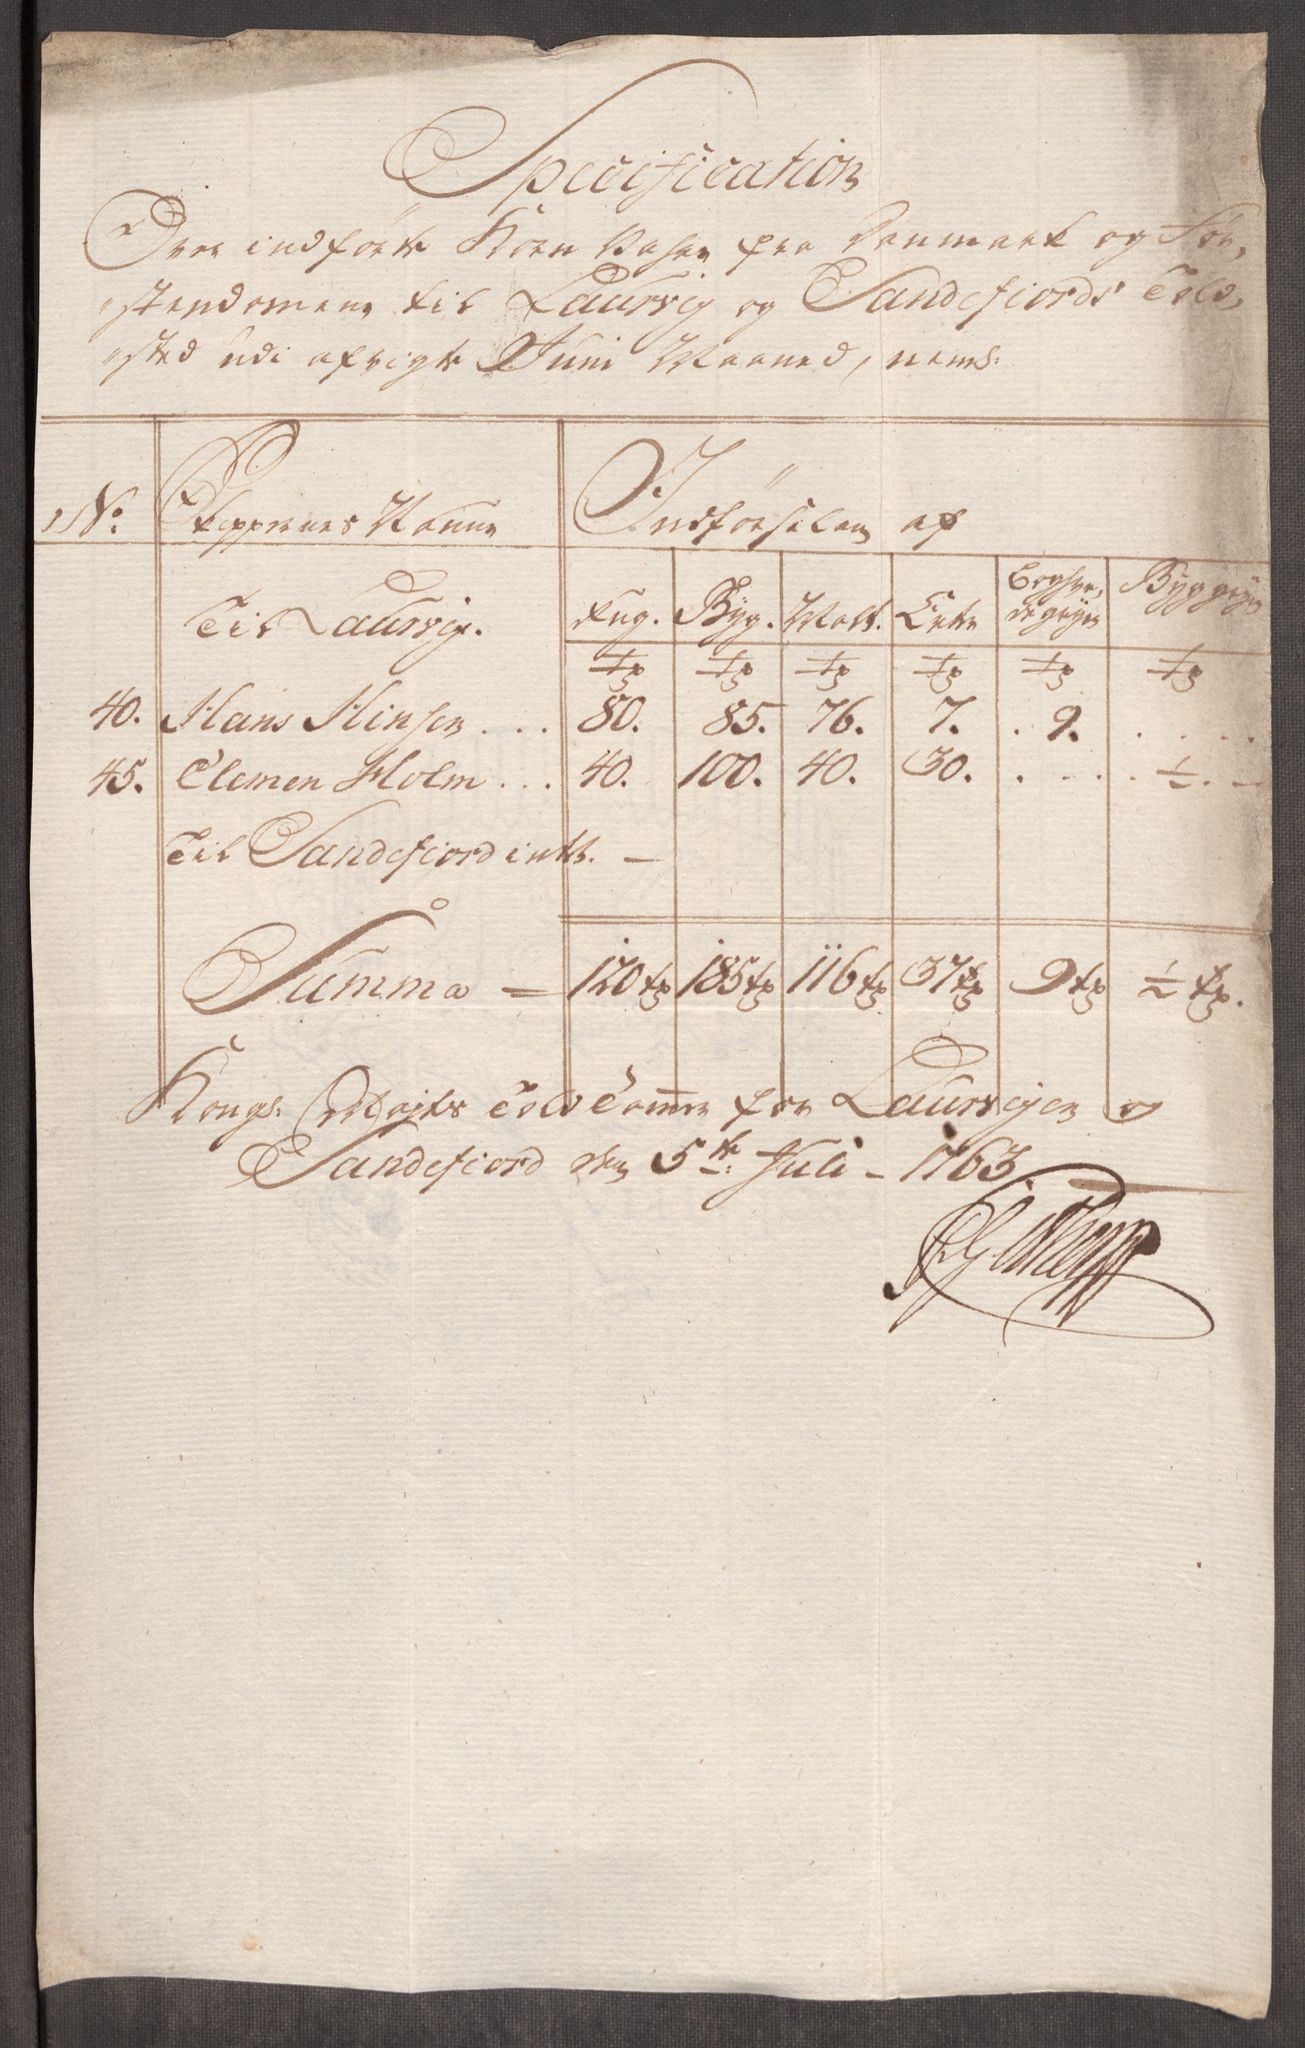 Specification
Over indførte Korn Vahre fra Danmark og Før,
stendomene til Laurvig og Sandefiords Told,
sted udi afvigte Juni Maaned, neml:
No: Skippernes Navne Indførselen af
Til Laurvig. Rug. Byg. Malt. Erter Boghve, degryn Byggryn
tr tr tr tr tr tr
40. Hans Hinsen ... 80. 85. 76. 7. . 9. . . . .
45. Clemen Holm ... 40. 100. 40. 30. . . . . ½. —
Til Sandefiord intet. —
Summa = 120 tr 185 tr 116 tr 37 tr 9 tr ½ tr.
Kongl: Mayts Told Camer for Laurvigen og
Sandefiord den 5te: Juli - 1763.